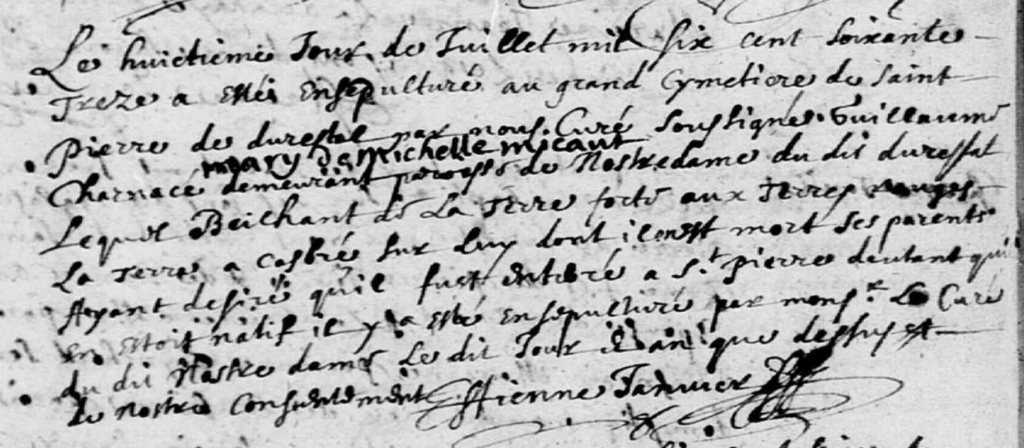 Le huictieme Jour de Juillet mil six cent soixante
Treze a esté ensepulturé au grand cymetiere de saint
Pierre de durestal par nous Curé soussigné Guillaume
mary de Michelle micaut
Charnacé demeurant paroesse de Nostredame du dit durestal
Lequel Beichant de La Terre forte aux Terres rouges
La Terre a casbré sur luy dont il en est mort ses parents
Ayant desiré qu'il fust enterré a St Pierre dautant qu'il
en estoit natif il y a esté ensepulturé par monsr Le Curé
du dit Nostre dame Le dit Jour et an que dessus et
de nostre consentement Estienne Janvier